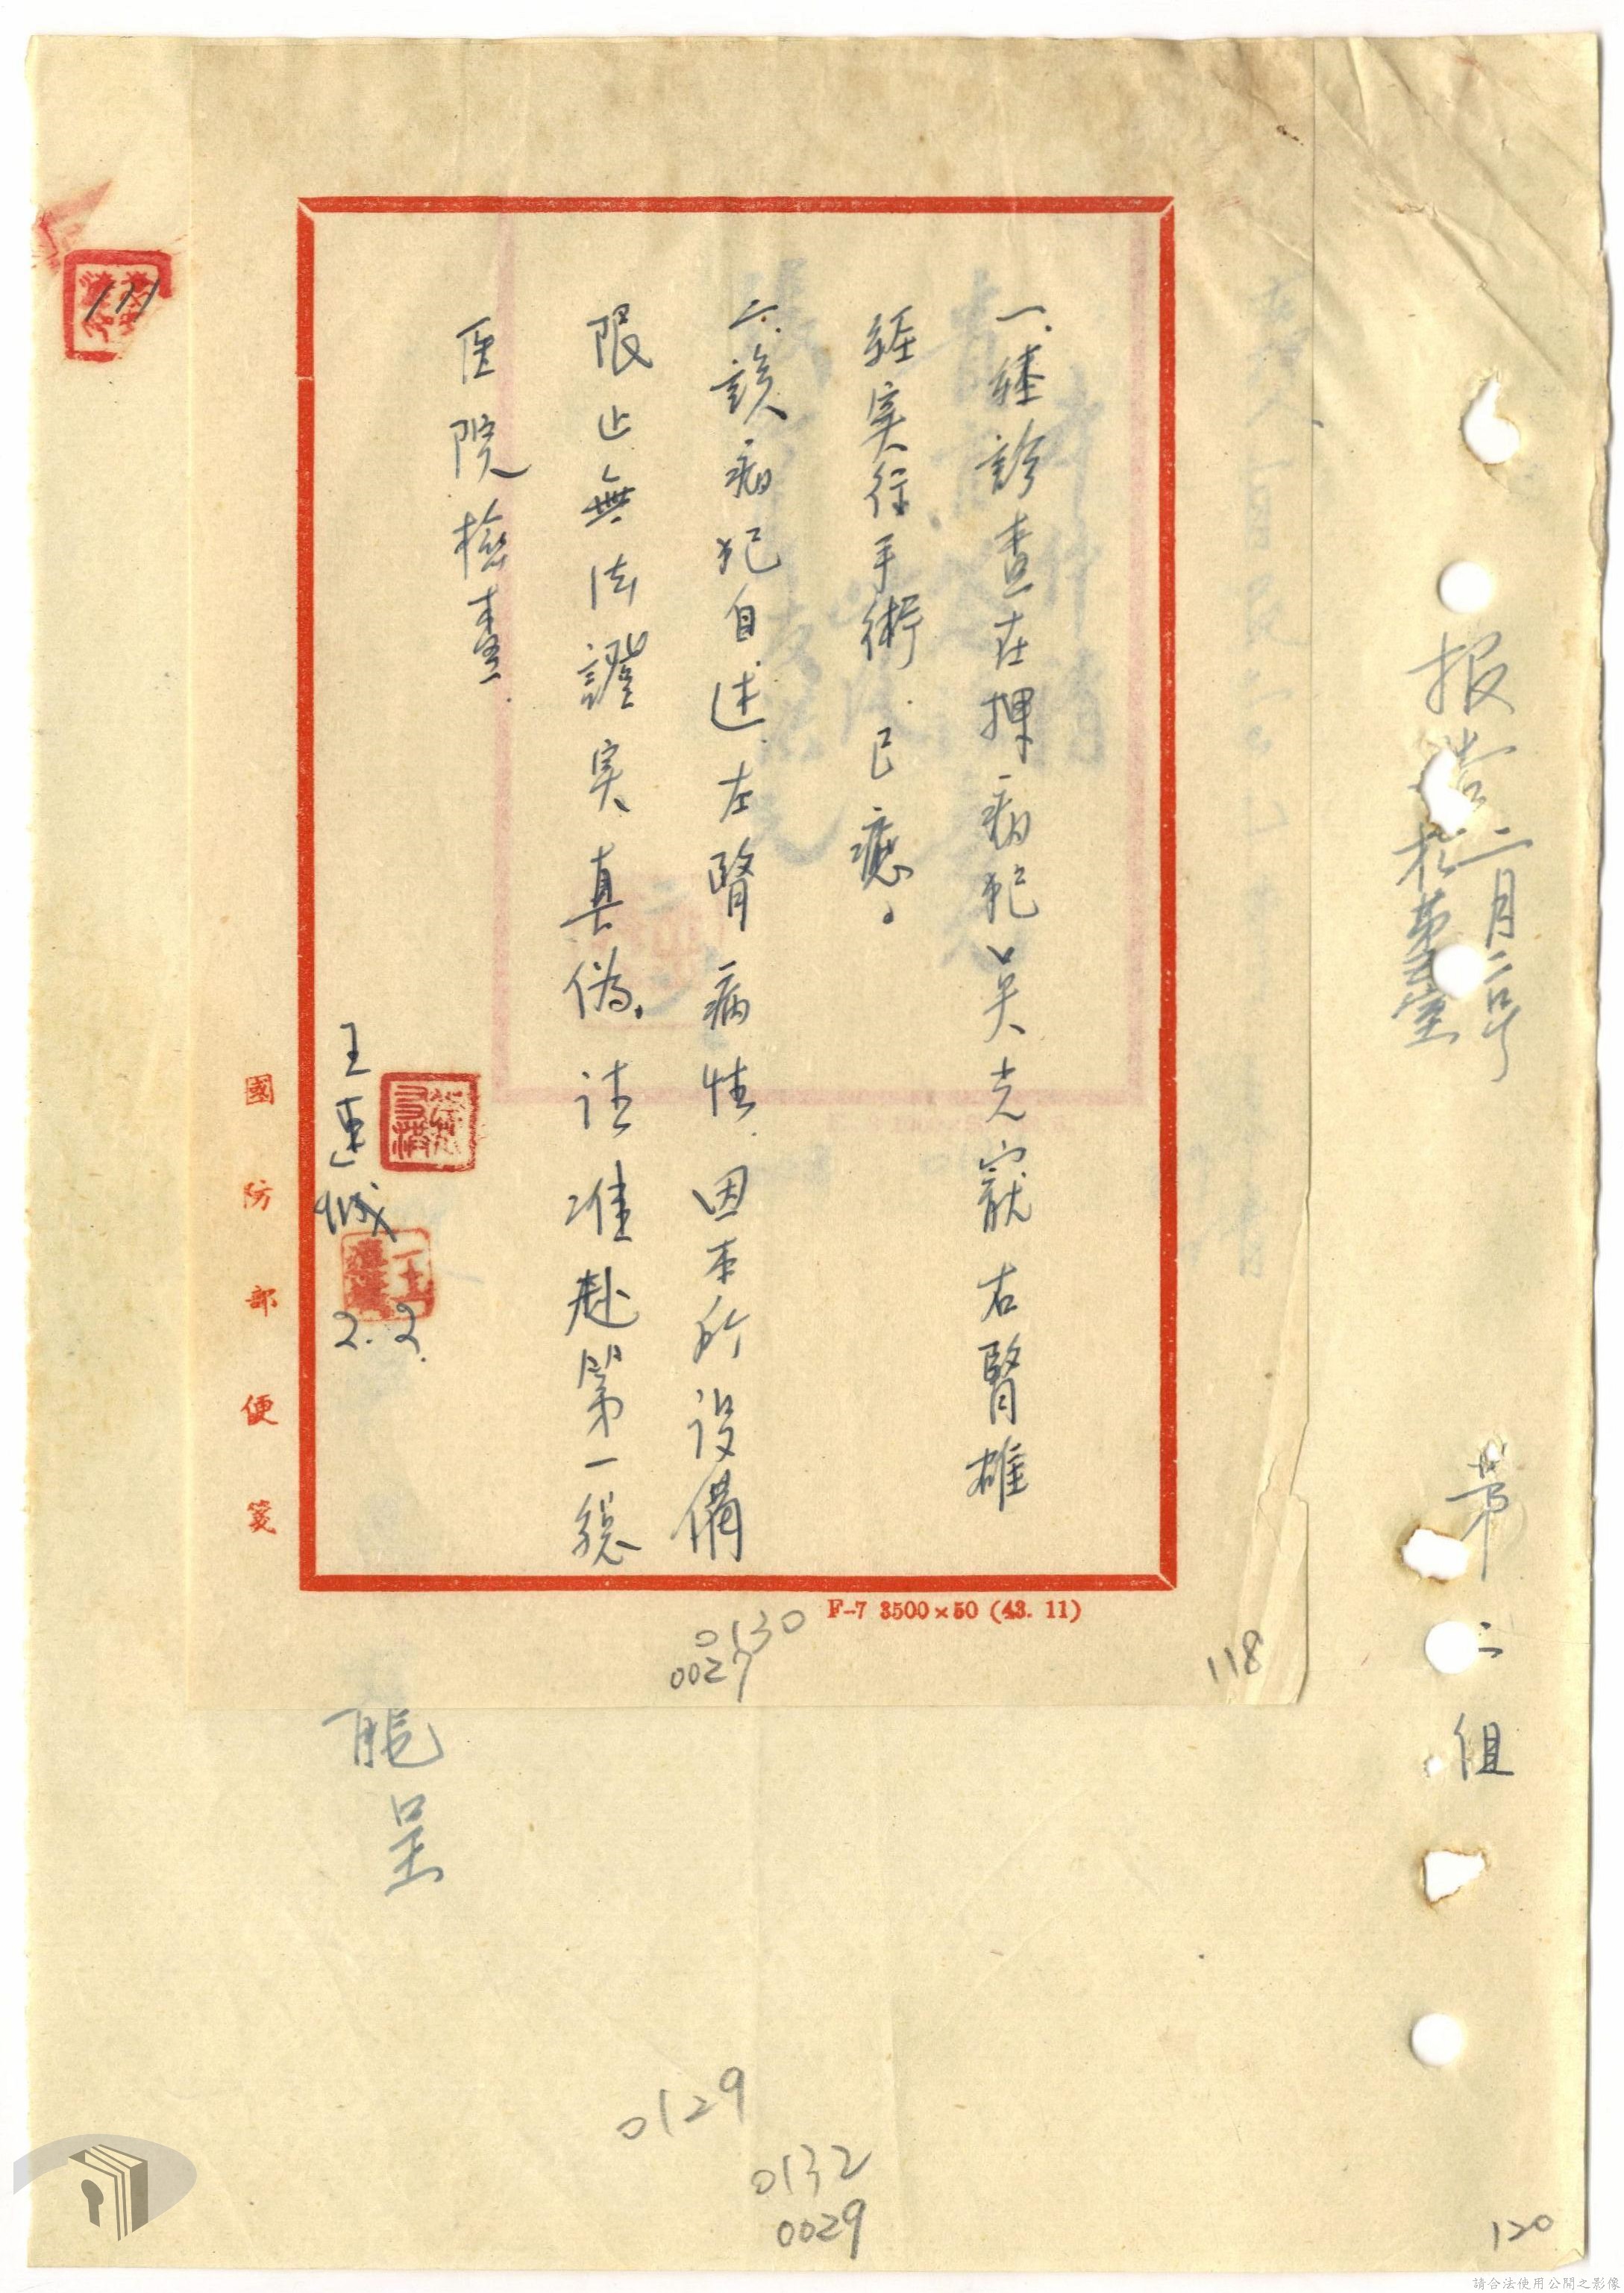 报告
二月二日
於第二室
第二組
一.經診查在押病犯吳克寵右腎雖
經実行手術.已癒。
二.該病犯自述.左腎病性.因本所设備
限止無法證实真偽,请准赴第一總
医院檢查.
王連城
2.2.
國防部便箋
F-7 3500×50 (43. 11)
0130
0027
118
呈
0129
0132
0029
120
請合法使用公開之影像